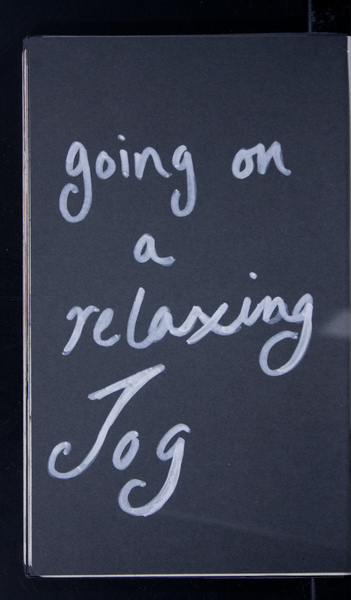 going on
a
relaxing
Jog